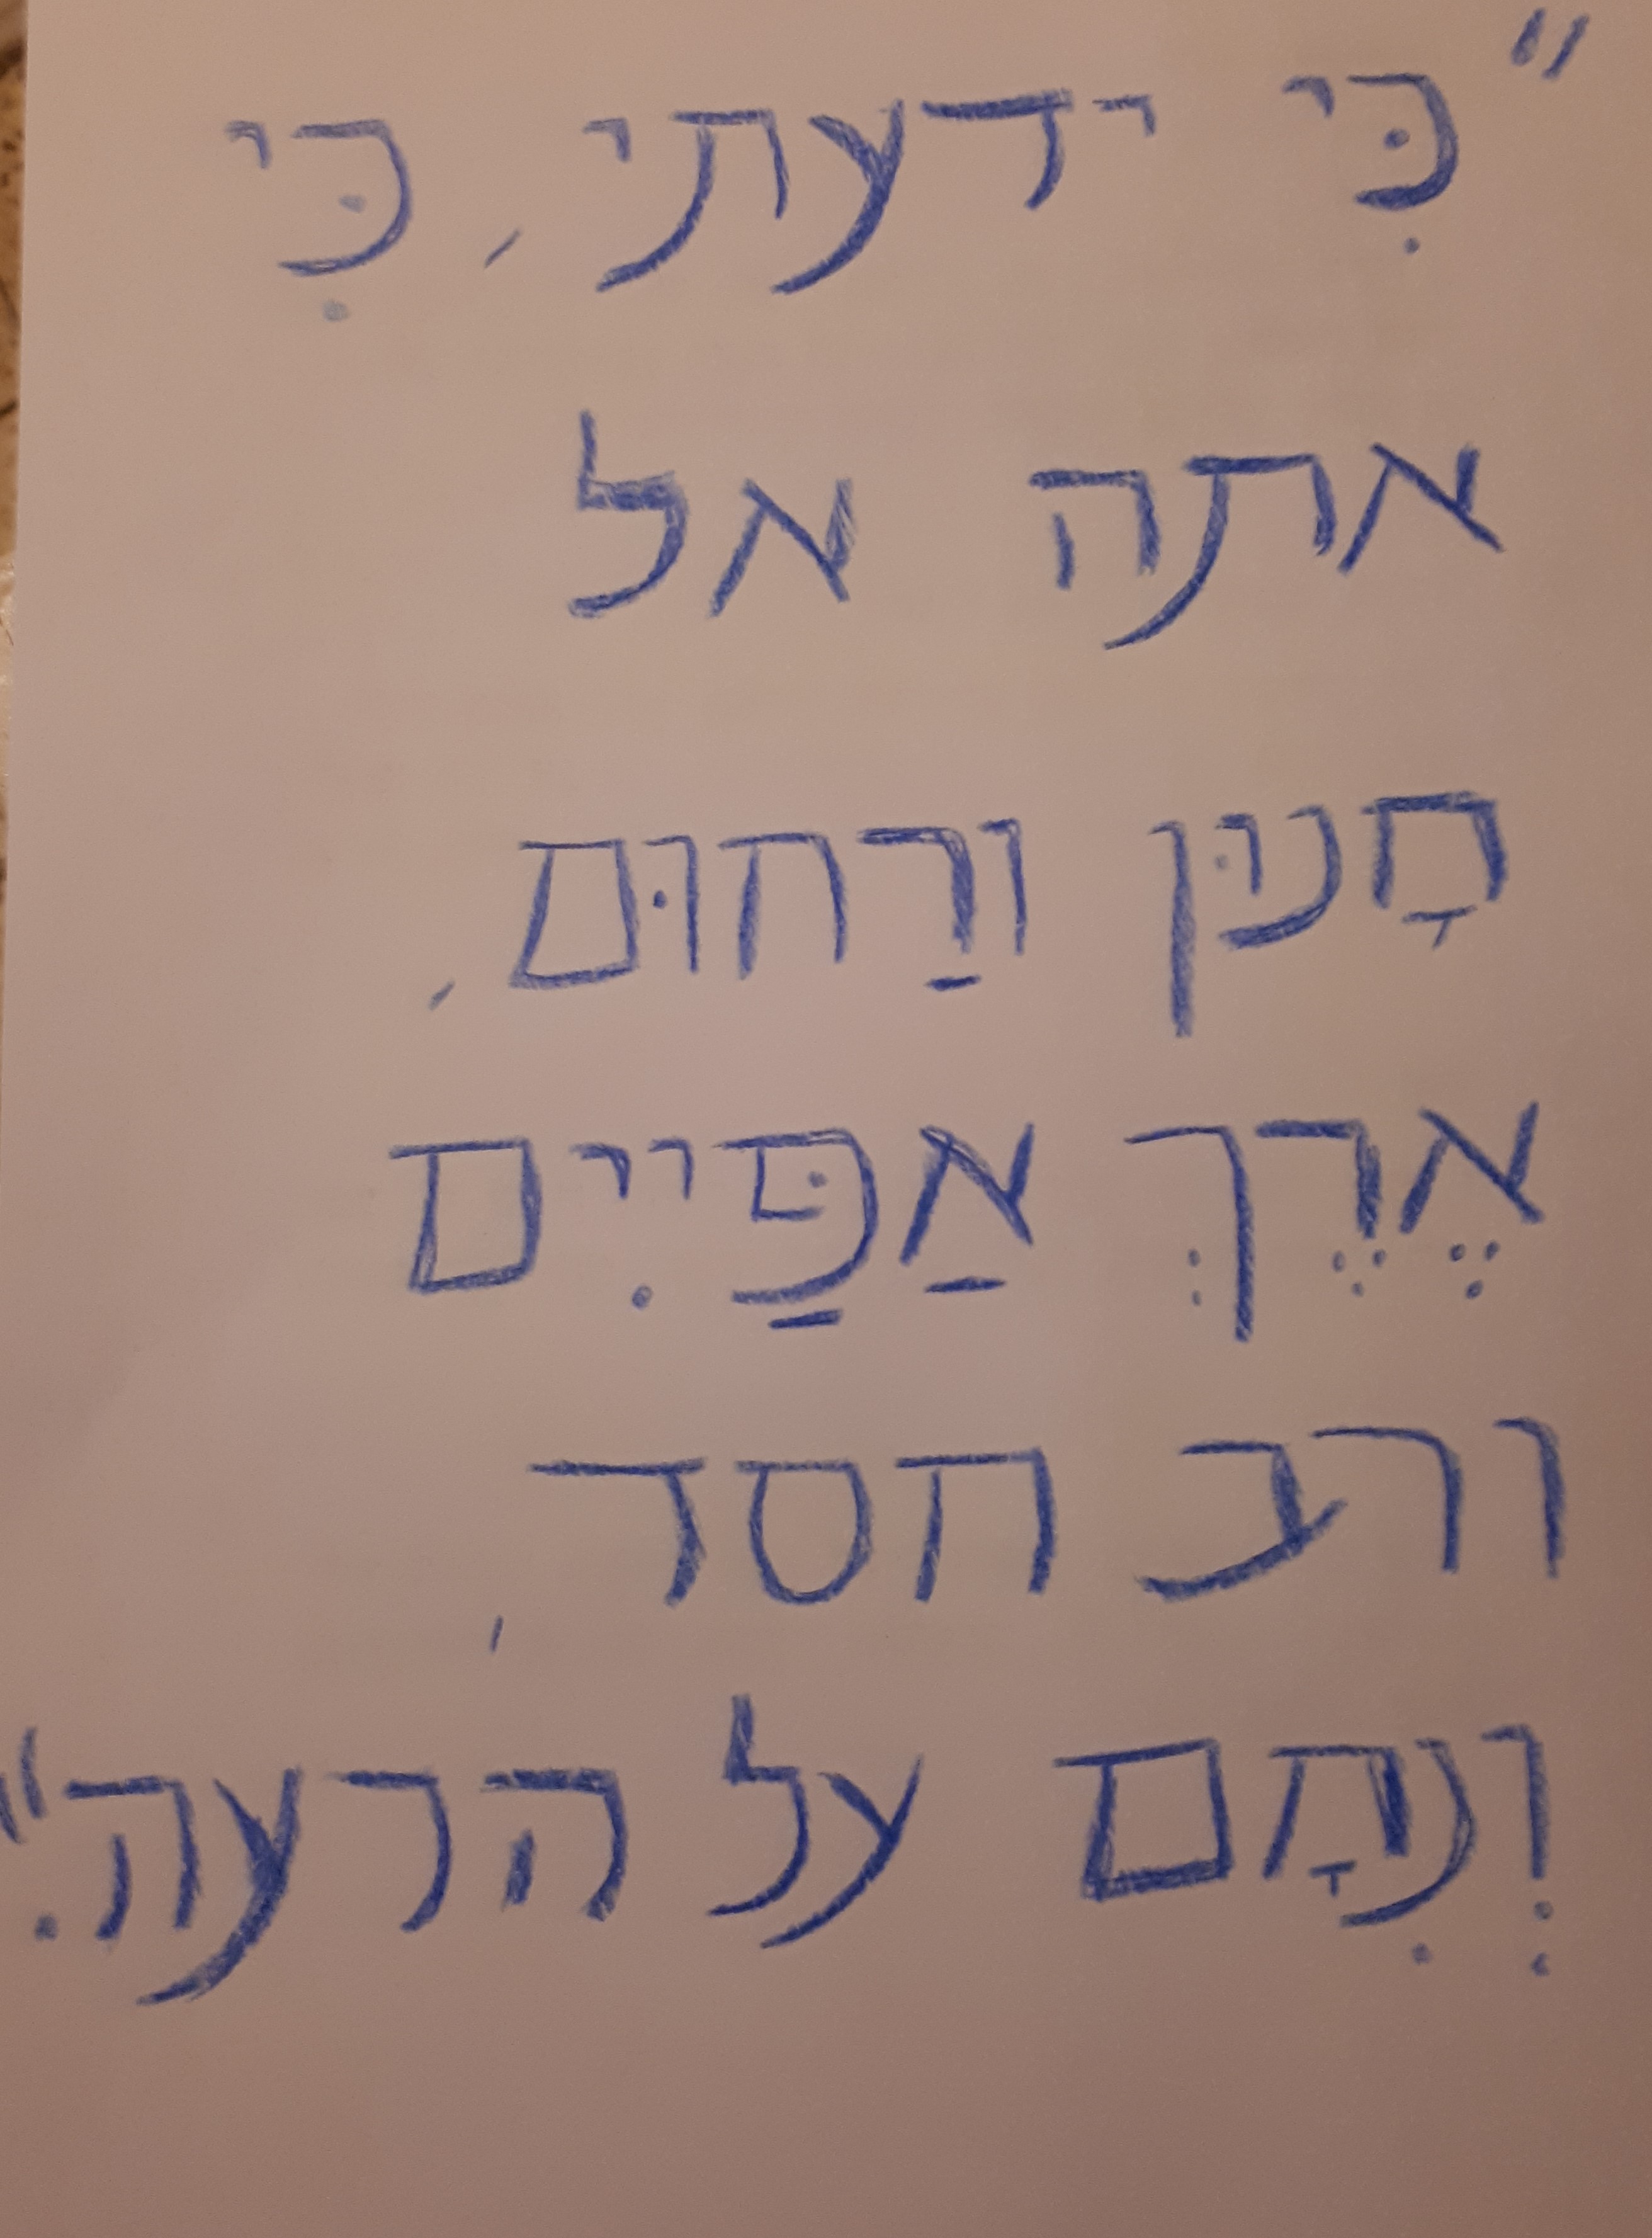 "כִּי ידעתי, כִּי
אתה אל
חָנוּן ורַחוּם,
אֶרֶךְ אַפַּיִים
ורב חסד,
וְנִחָם על הרעה."